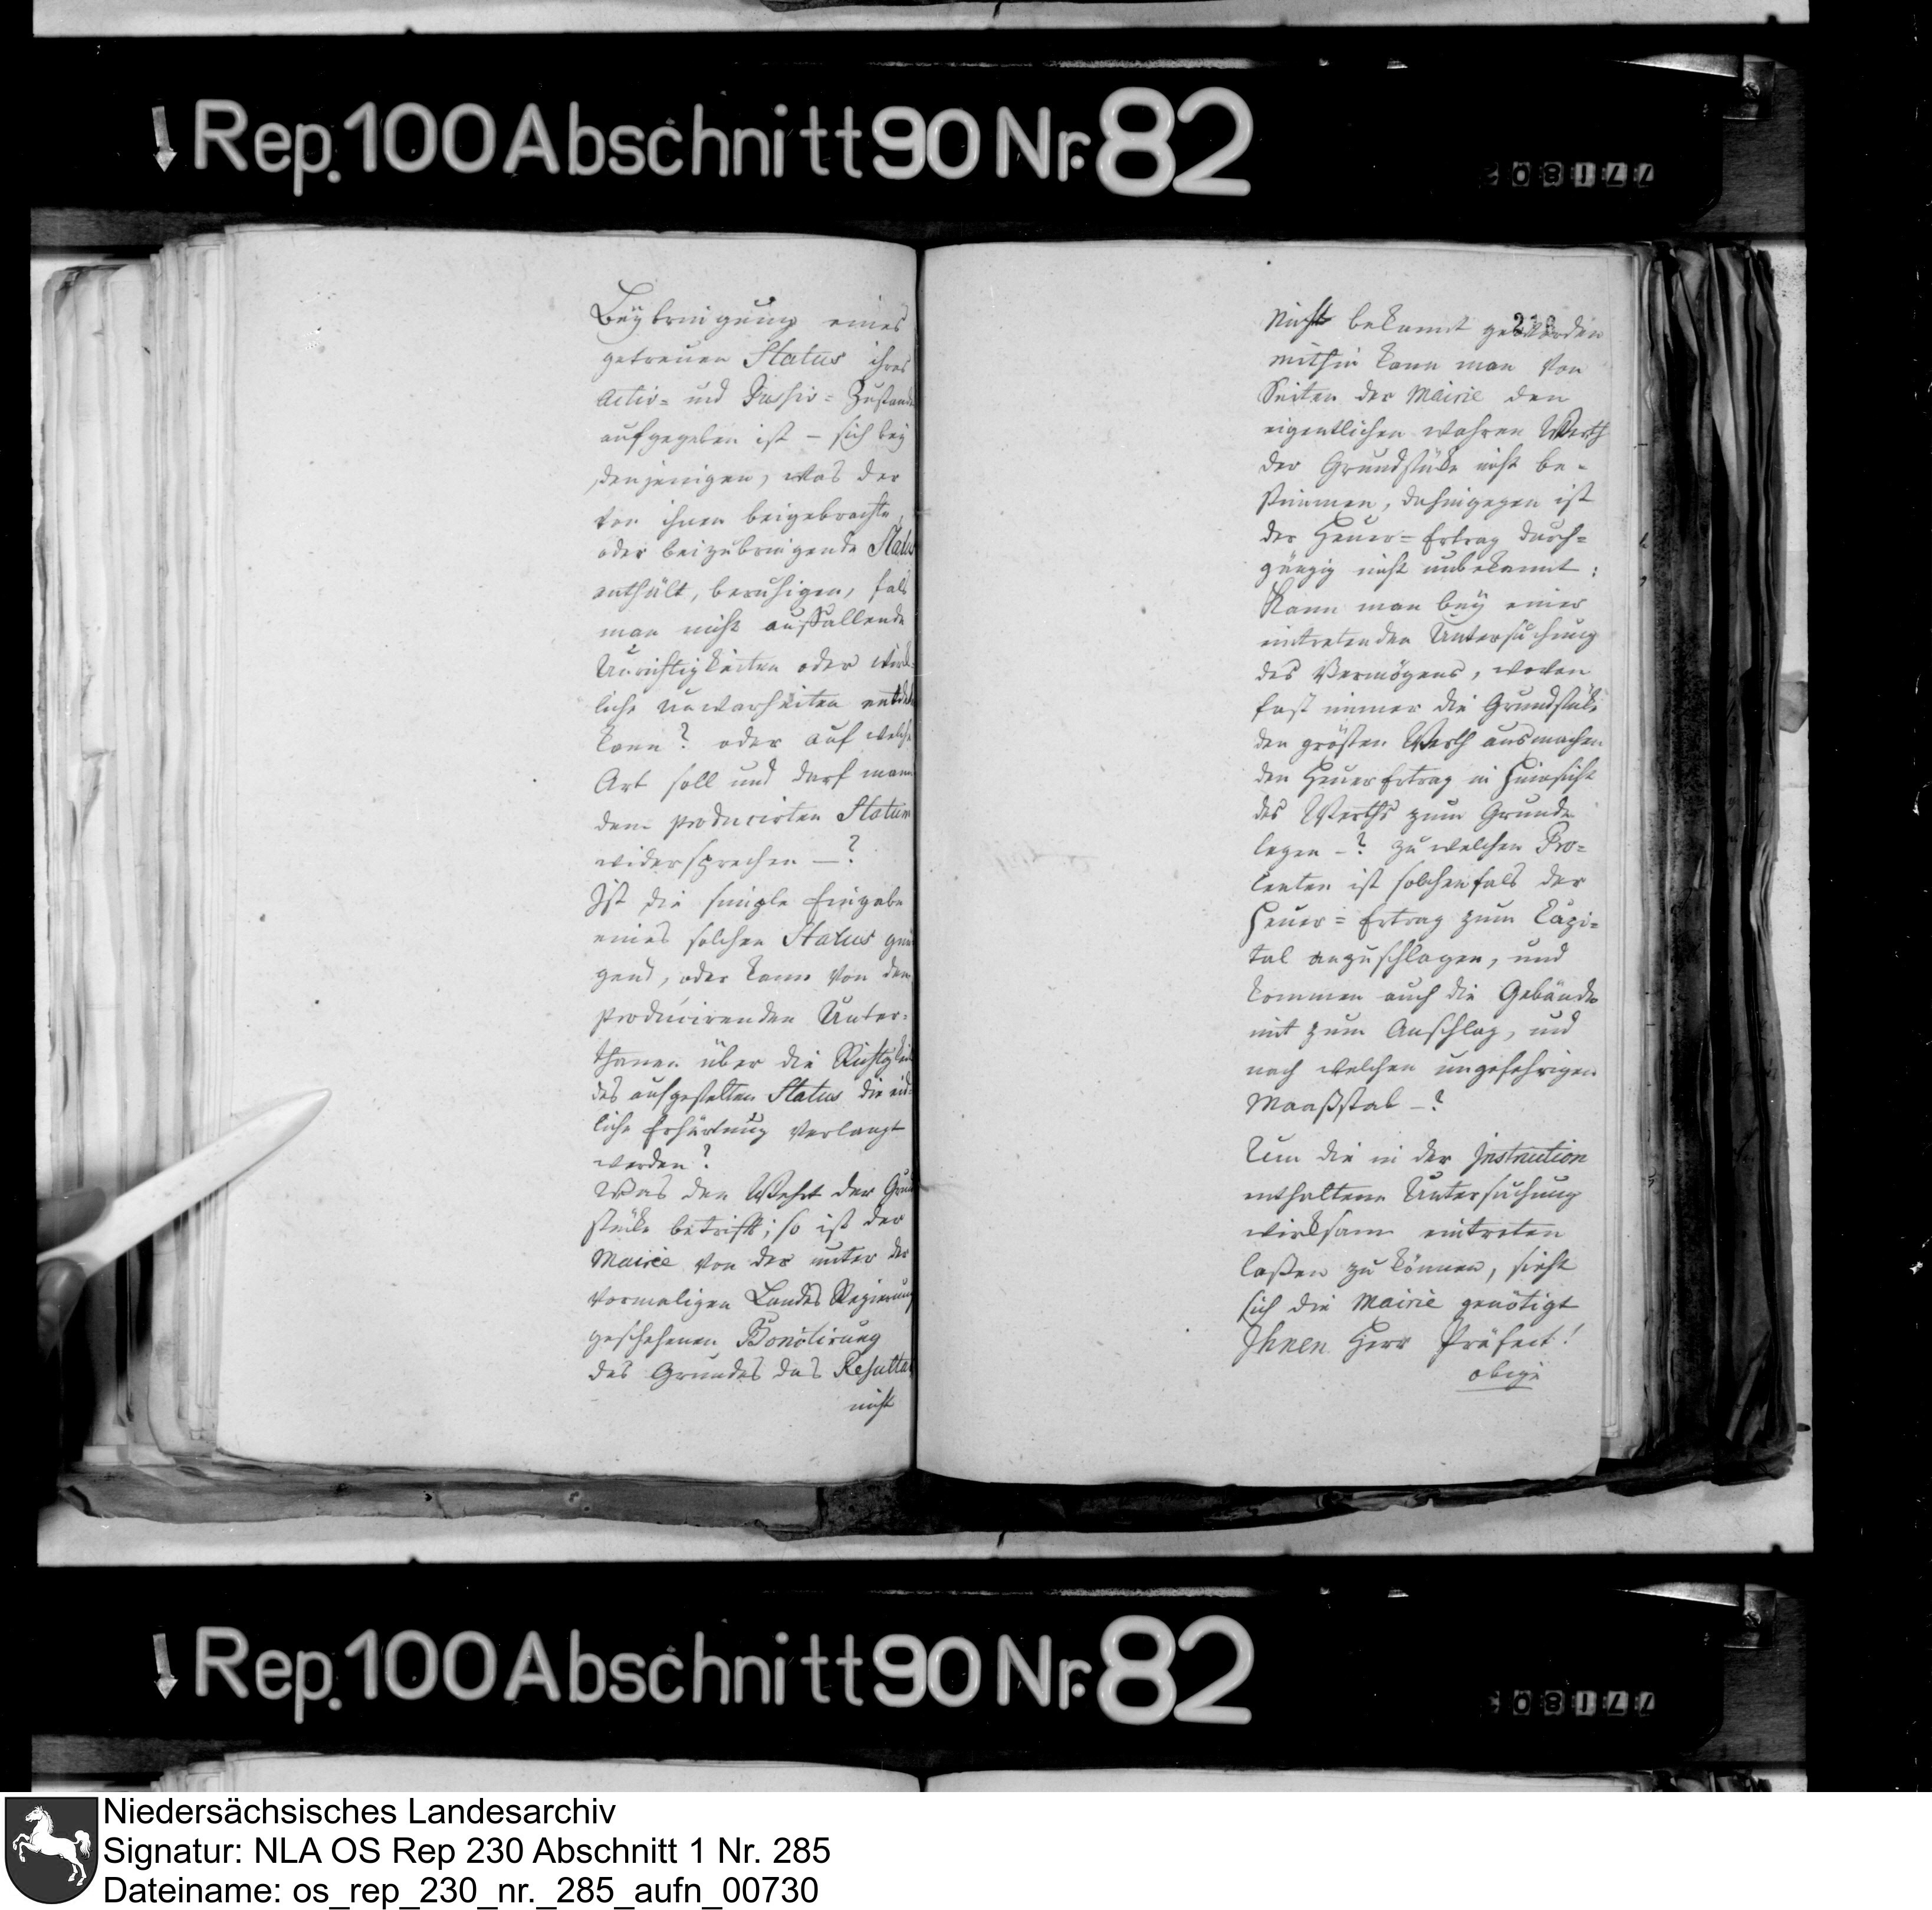 Rep. 100 Abschnitt 90 Nr. 82
77180
Beÿbringung eines
getreuen Status ihres
Activ= und Passiv= Zustandes
aufgegeben ist – sich beÿ
denjenigen, was der
von ihnen beigebrachte,
oder beizubringende Status
enthält, beruhigen, fals
man nicht auffallende
Unrichtigkeiten oder wirk=
liche unwarheiten entdek
kann? oder auf welche
Art soll und darf man
dem producirten Statum
widersprechen –?
Ist die simple Eingabe
eines solchen Status genü
gend, oder kann von dem
producirenden Unter=
thanen über die Richtigkeit
des aufgestelten Status die eid=
liche Erhärtung verlangt
werden?
Was den Wehrt der Grund
stüke betrift; so ist der
Mairie von der unter der
vormaligen Landes Regierung
geschehenen Bonitirung
des Grundes das Resultat
nicht
218
Nicht bekannt geworden
mithin kann man von
Seiten der Mairie den
eigentlichen wahren Werth
der Grundstüke nicht be=
stimmen, dahingegen ist
der Heuer=Ertrag durch=
gängig nicht unbekannt:
Kann man beÿ einer
eintretenden Untersuchung
des Vermögens, wovon
fast immer die Grundstüke
den grösten Werth ausmachen
den Heuer Ertrag in Hinsicht
des Werths zum Grunde
legen –? zu welchen Pro=
centen ist solchenfals der
Heuer=Ertrag zum Capi=
tal anzuschlagen, und
kommen auch die Gebäude
mit zum Anschlag, und
nach welchen ungefehrigen
Maaßstab –?
Um die in der Instruction
enthaltene Untersuchung
wirksam eintreten
laßen zu können, sieht
sich die Mairie genötigt
Ihnen Herr Präfect!
obige
Rep. 100 Abschnitt 90 Nr. 82
77180
Niedersächsisches Landesarchiv
Signatur: NLA OS Rep 230 Abschnitt 1 Nr. 285
Dateiname: os_rep_230_nr._285_aufn_00730